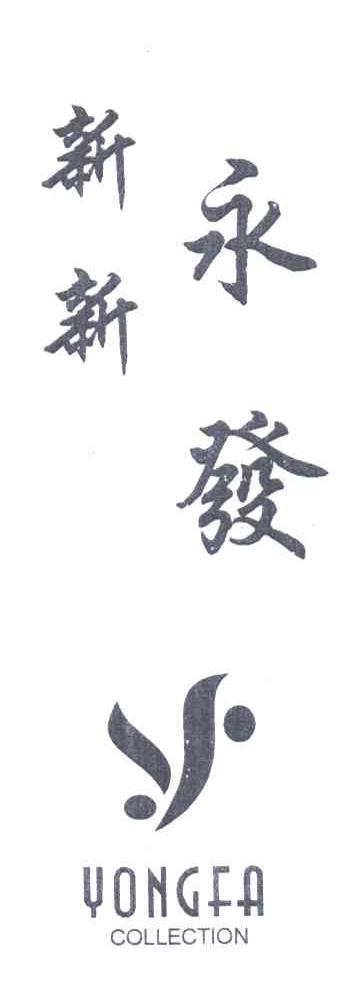 永發
新新
YONGFA
COLLECTION